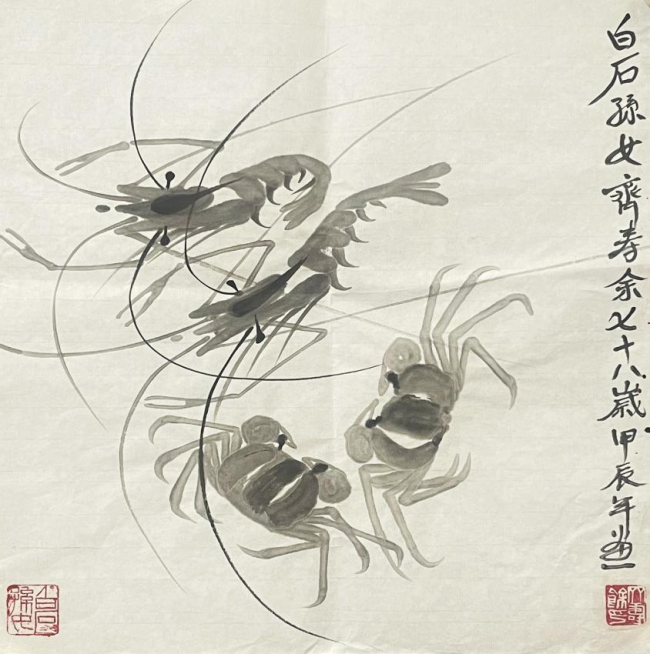 白石孫女齊寿余七十八歲甲辰年画
白石孫女